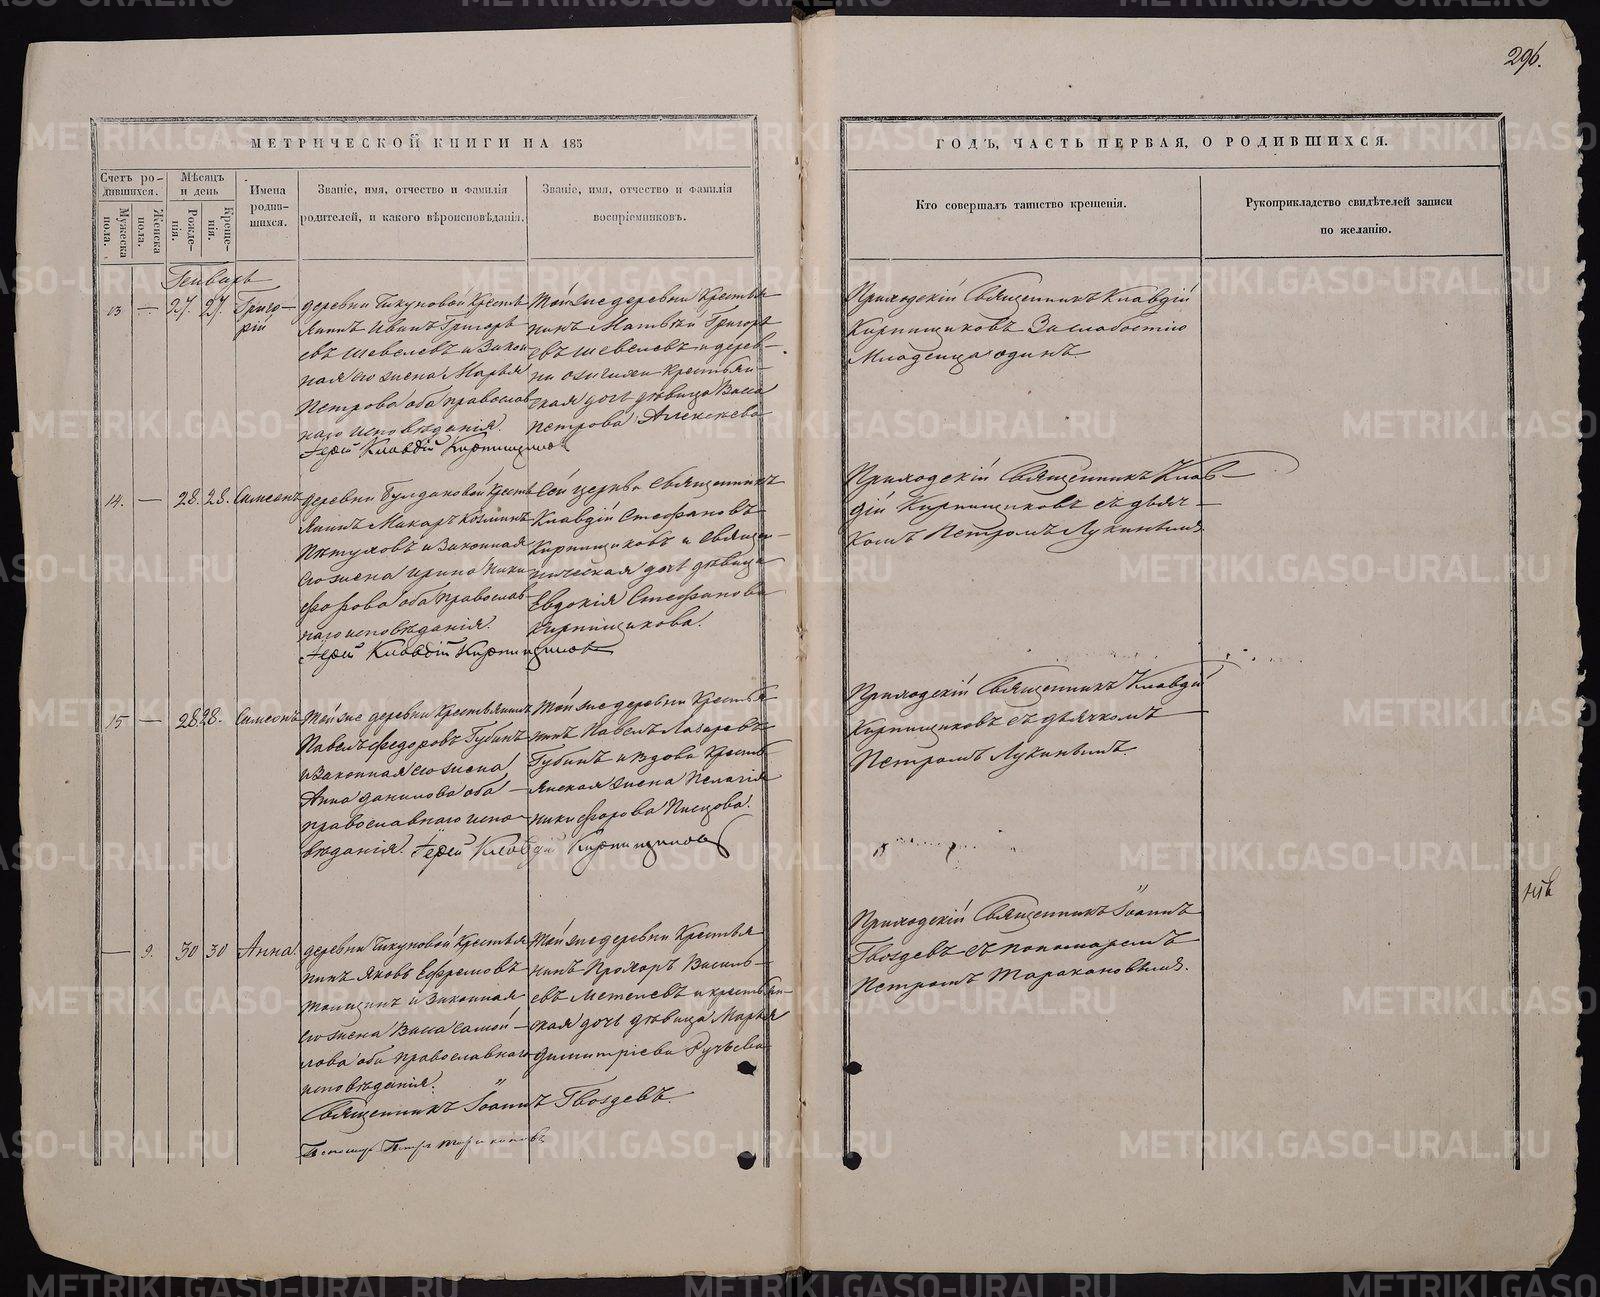 296.
МЕТРИЧЕСКОЙ КНИГИ НА 185
ГОДЪ, ЧАСТЬ ПЕРВАЯ, О РОДИВШИХСЯ.
Счетъ ро-
дившихся.
Мужеска
пола.
Женска
пола.
Мѣсяцъ
и день
Рожде-
нія.
Креще-
нія.
Имена
родив-
шихся.
Званіе, имя, отчество и фамилія
родителей, и какого вѣроисповѣданія.
Званіе, имя, отчество и фамилія
воспріемниковъ.
Кто совершалъ таинство крещенія.
Рукоприкладство свидѣтелей записи
по желанію.
Генварь
13 — 27. 27. Григо-
рій
деревни Тикуновой Кресть
янинъ Иванъ Григорь
евъ Шевелевъ и Закон
ная его жена Марья
Петрова оба православ
наго исповѣданія.
Іерей Клавдій Кирпищиковъ
Той же деревни Крестья
нинъ Матвѣй Григорь
евъ Шевелевъ и дерев-
ни крестьян-
ская дочь дѣвица Васса
Петрова Алексѣева
Приходскій Священникъ Клавдій
Кирпищиковъ За слабостію
Младенца одинъ
14. — 28. 28. Симеонъ
деревни Булдаковой Кресть
янинъ Макаръ Козминъ
Пѣтуховъ и Законная
его жена Ирина Ники
форова оба православ
наго исповѣданія.
Іерей Клавдій Кирпищиковъ
Сей церкви Священникъ
Клавдій Стефановъ
Кирпищиковъ и Священ-
ническая дочь дѣвица
Евдокія Стефанова
Кирпищикова.
Приходскій Священникъ Клав-
дій Кирпищиковъ съ дьяч-
комъ Петромъ Лукинымъ
15 — 28 28. Симеонъ
Той же деревни Крестьянинъ
Павелъ Федоровъ Губинъ
и Законная его жена
Анна Данилова оба
православнаго испо-
вѣданія. Іерей Клавдій Кирпищиковъ
Той же деревни Крестья
нинъ Павелъ Лазаревъ
Губинъ и Вдова Кресть
янская жена Пелагія
Никифорова Писцова.
Приходскій Священникъ Клавдій
Кирпищиковъ съ дьячкомъ
Петромъ Лукинымъ.
— 9. 30 30 Анна.
деревни Тикуновой Крестья
нинъ Яковъ Ефремовъ
и Законная
его жена Васса Самой-
лова оба православнаго
исповѣданія.
Священникъ Іоаннъ Гвоздевъ.
Пономарь Петръ Таракановъ
Той же деревни Крестья
нинъ Прохоръ Василь-
евъ Метелевъ и крестьян-
ская дочь дѣвица Марья
Димитріева Ручьева
Приходскій Священникъ Іоаннъ
Гвоздевъ съ пономаремъ
Петромъ Таракановымъ.